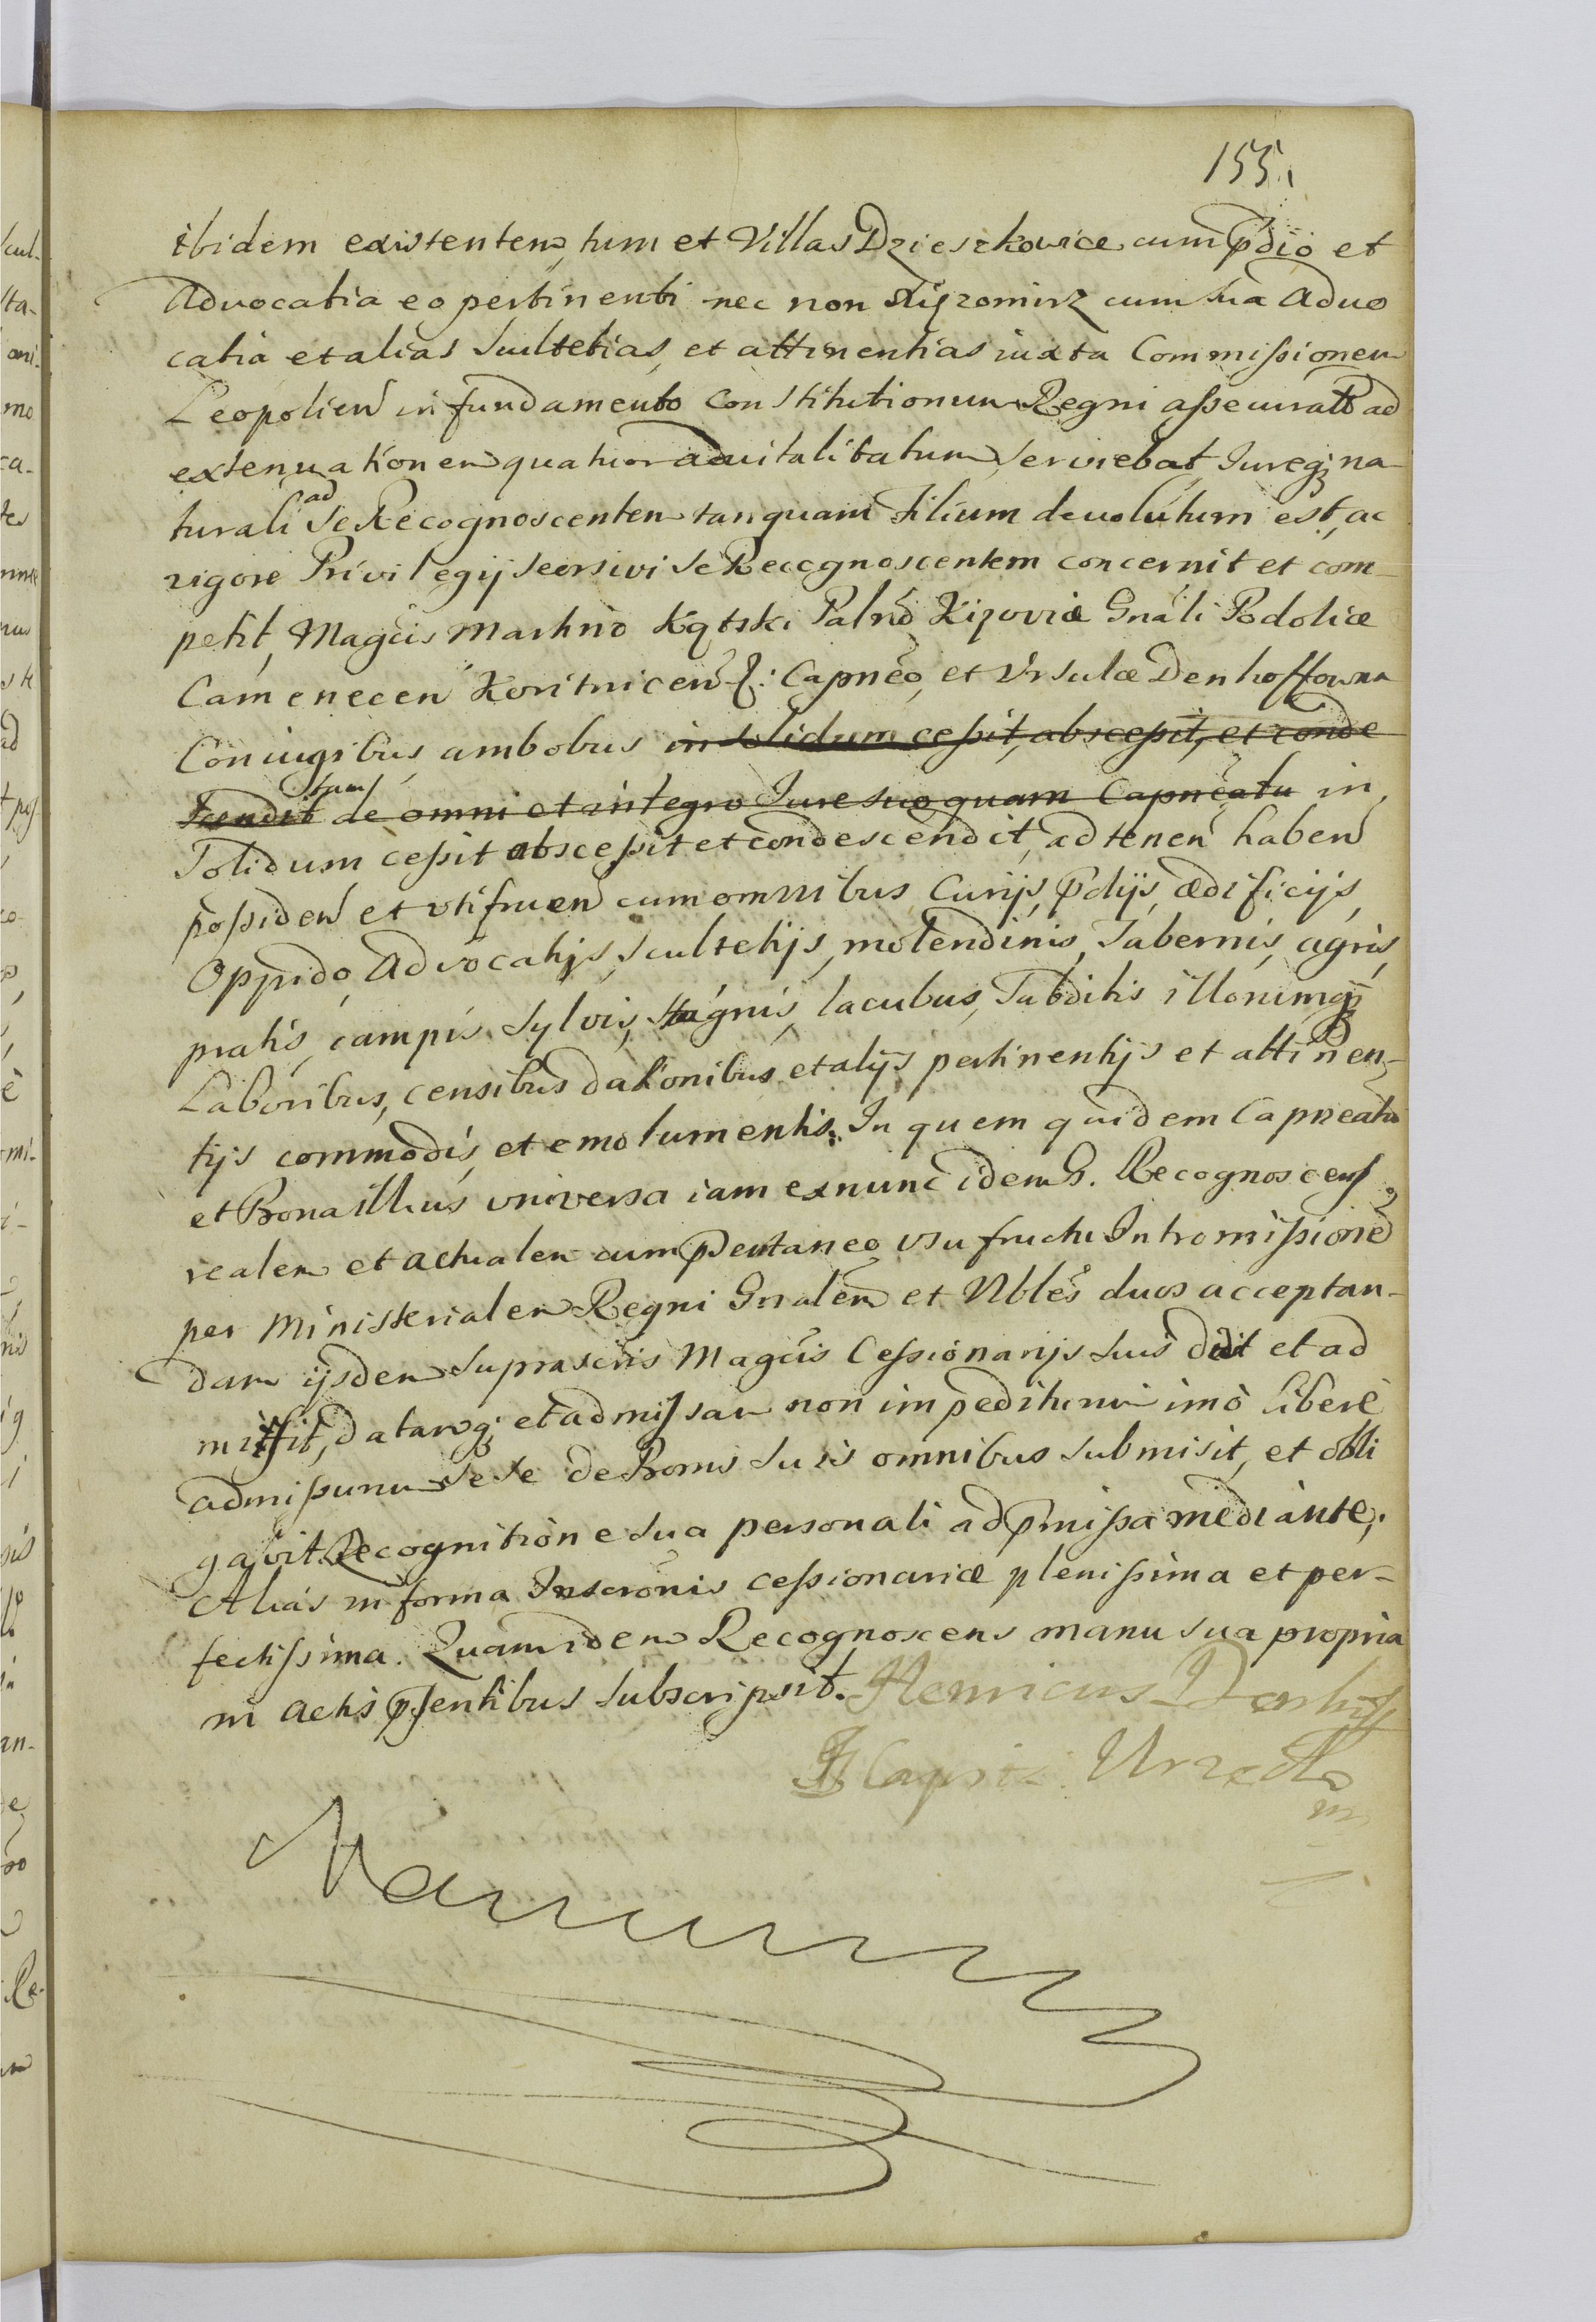 155.
ibidem existentem, tum et Villas Dzieszkowice cum p̄dio et
Advocatia eo pertinenti nec non Xyzomirz cum sua Advo
catia et alias Scultetias, et attinentias iuxta Commissionem
Leopolien in fundamento Constitutionum Regni assecurat ad
extenuationem quatuor advitalitatum serviebat Jureq; na-
turali ad se Recognoscentem tanquam Filium devolutum est, ac
vigore Privilegij seorsivi se Recognoscentem concernit et com-
petit, Magcis Martino Kątski Palnō Kijoviæ Gnāli Podoliæ
Camenecen Koritnicen Capneō, et Ursulæ Denhoffowna
Coniugibus ambobus in solidum cessit, abscessit, et conde
scendit de omni et integro Jure suo quam Capneatu in
solidum cessit abscessit et condescendit, ad tenen haben
possiden et utifruen cum omnibus Curijs, p̄dijs, ædificijs,
Oppido, Advocatijs, Scultetijs, molendinis, Tabernis, agris,
pratis, campis, Sylvis, stagnis, lacubus, Subditis illorumq;
Laboribus, censibus dationibus et alijs pertinentijs et attinen-
tijs commodis, et emolumentis. In quem quidem Capneatū
et Bona illius universa iam exnunc idem G. Recognoscens
realem et actualem cum p̄sentaneo usufructu Intromissionē
per Ministerialem Regni Gnālem et Nbles duos acceptan-
dam ijsdem suprascris Magcis Cessionarijs suis dedit et ad
misit, datamq; et admissam non impediturum imò liberè
admissurum sese de Bonis suis omnibus submisit, et obli
gavit Recognitione sua personali ad p̄missa mediante,
Alias in forma Inscrōnis cessionariæ plenissima et per-
fectissima. Quam idem Recognoscens manu sua propria
in Actis p̄sentibus subscripsit. Henricus Denhoff